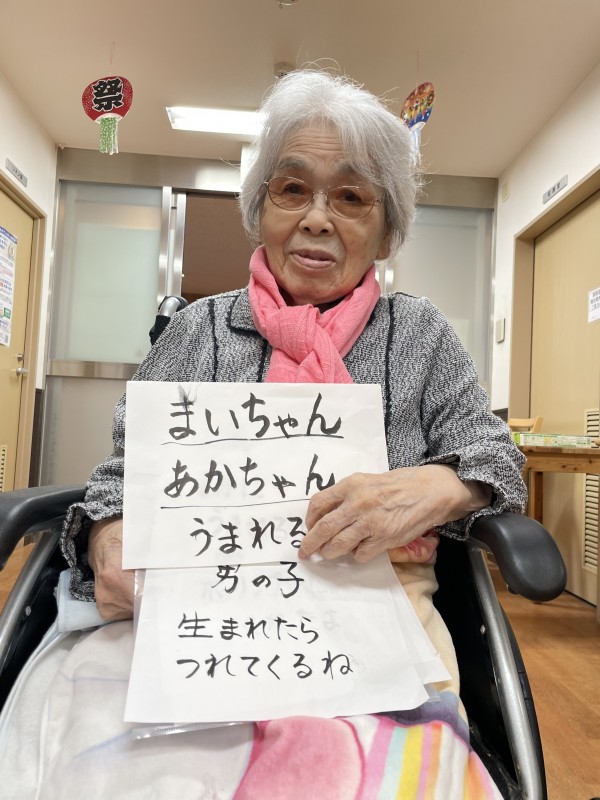 祭
まいちゃん
あかちゃん
うまれる
男の子
生まれたら
つれてくるね